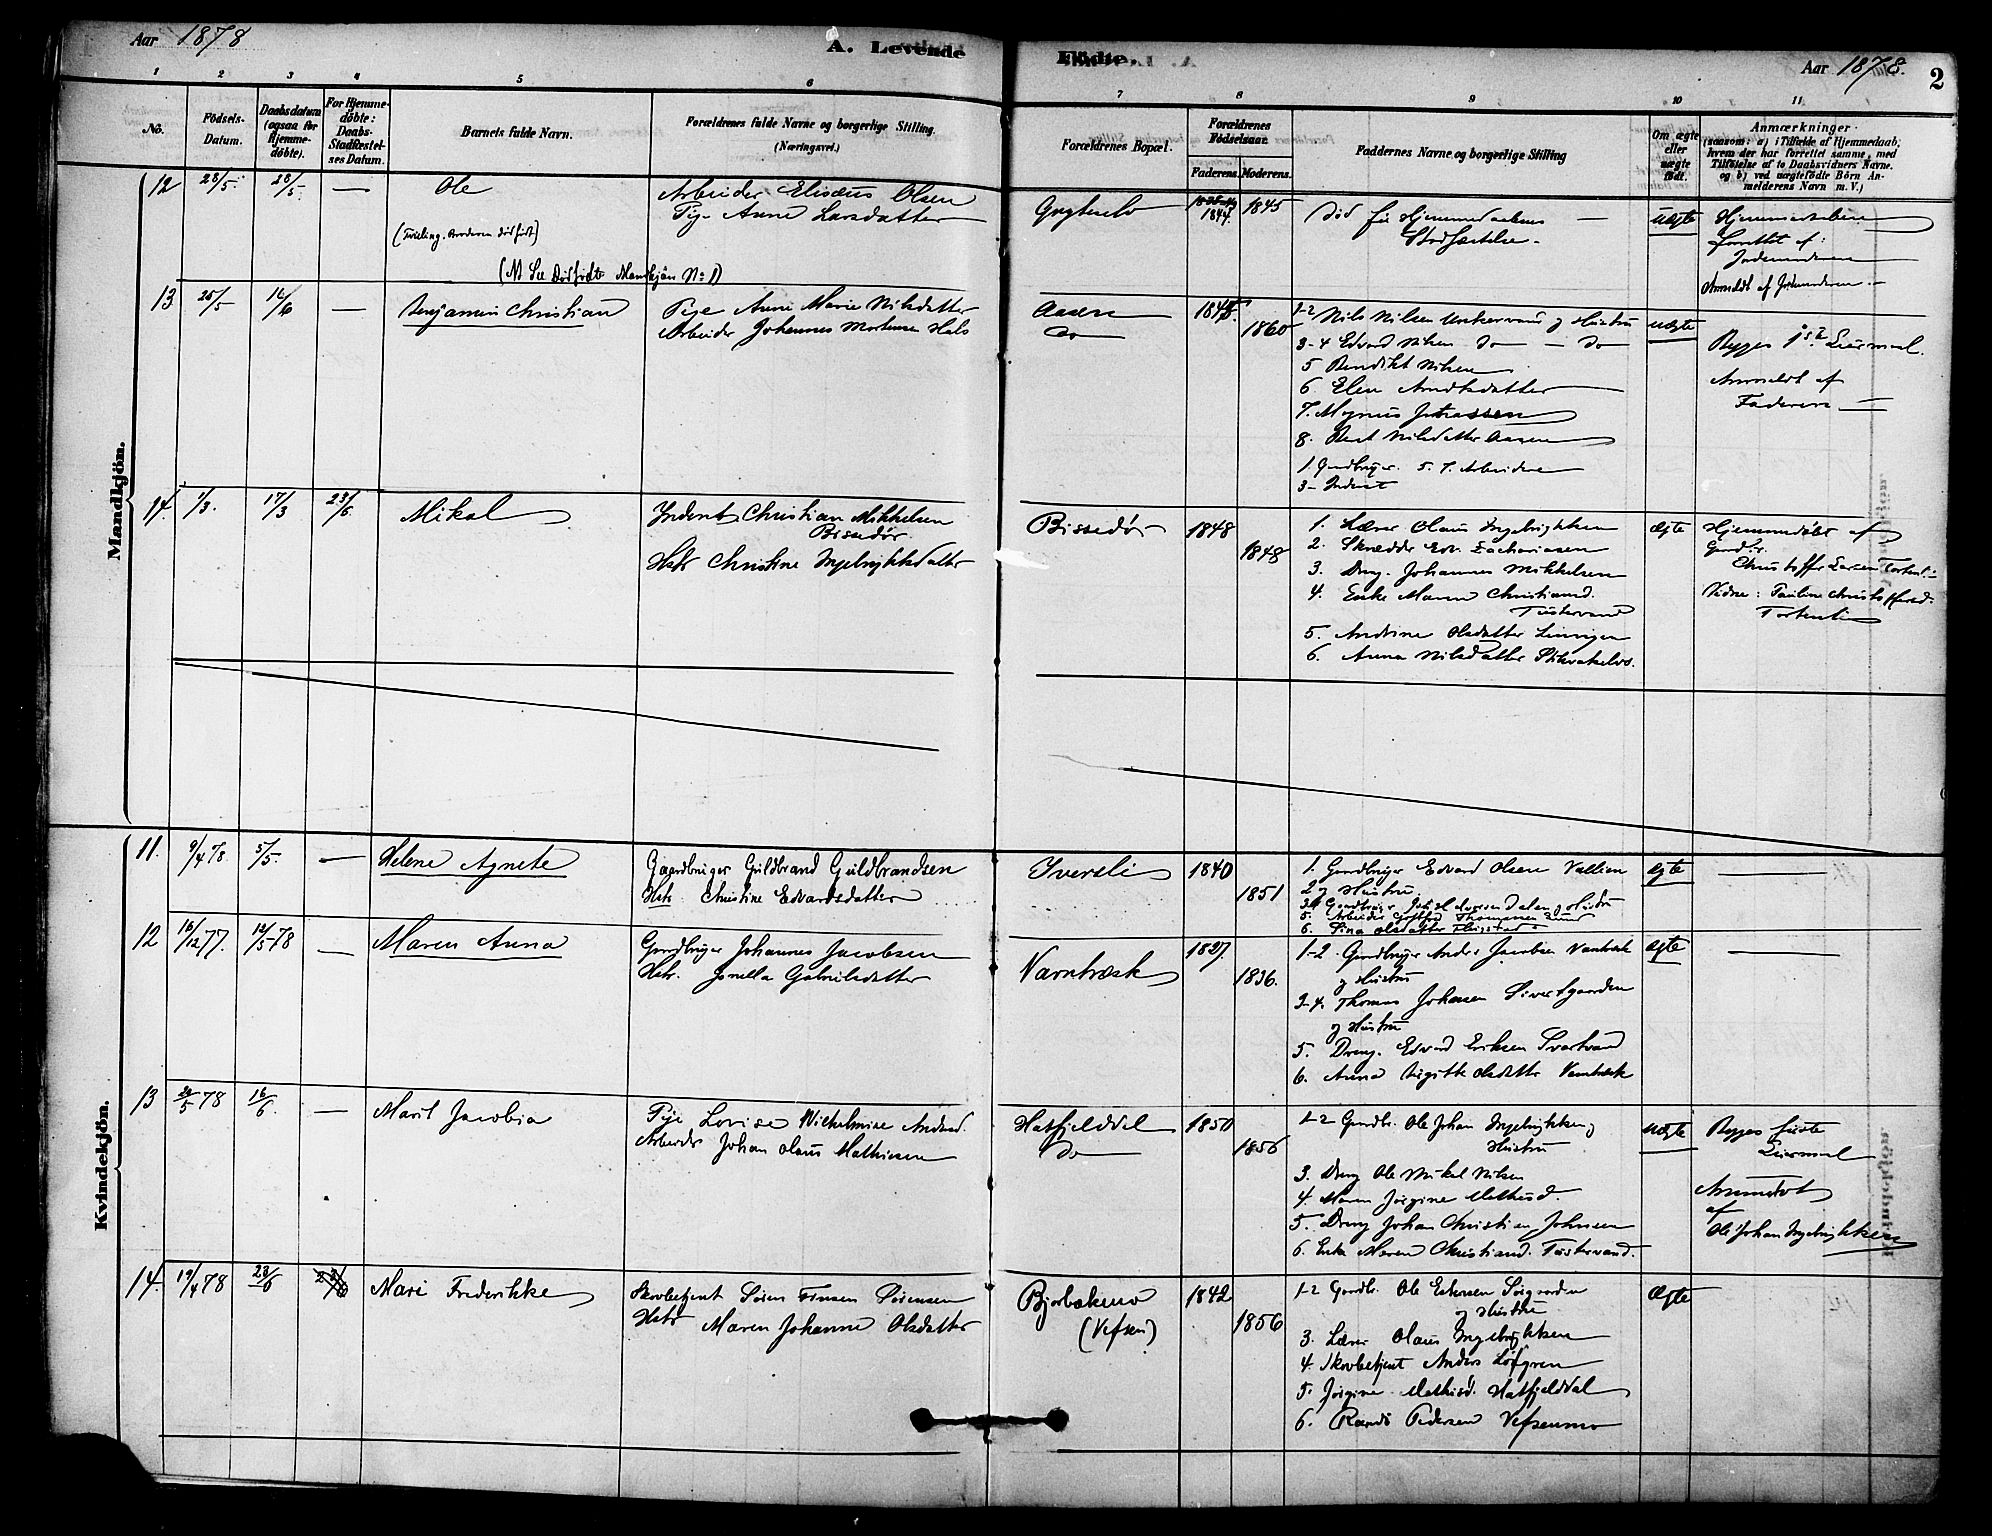 Aar 1878
A. Levende
Födte.
Aar 1878.
2
1 2 3 4 5 6 7 8 9 10 11
No.
Födsels-
Datum.
Daabsdatum
(ogsaa for
Hjemme-
döbte).
For Hjemme-
döbte:
Daabs-
Stadfæstel-
ses Datum.
Barnets fulde Navn.
Forældrenes fulde Navne og borgerlige Stilling.
(Næringsvei.)
Forældrenes Bopæl.
Forældrenes
Födselsaar.
Faderens. Moderens.
Faddernes Navne og borgerlige Stilling
Om ægte
eller
uægte
född.
Anmærkninger.
(saasom: a) i Tilfælde af Hjemmedaab,
hvem der har forrettet samme, med
Tilföielse af to Daabsvidners Navne.
og b) ved uægtefödte Börn An-
melderens Navn m. V.)
Mandkjön.
12 28/5. 28/5. — Ole
(Tvilling. Broderen dødfødt)
(N See Dødfødte Mandkjön No 1)
Arbeider Elisæus Olsen
Pige Anne Larsdatter
1844. 1845
Død før Hjemmedaabens
Stadfæstelse.
Uægte
Hjemmedaaben
forrettet af:
Jordemoderen
Anmeldt af Jordmoderen
13 25/5 16/6 — Benjamin Christian
Pige Anne Marie Nilsdatter
Arbeider Johannes Mortensen Hals
Aasen
Do
1860
1-2 Nils Nilsen Unkervand og Hustru
3-4 Edvard Nilsen Do — Do
5 Bendikt Nilsen
6 Elen Arndtsdatter
7. Magnus Johansen
8. Berit Nilsdatter Aasen
1 Gaardbruger. 5. 7. Arbeidere
3- Inderst
Uægte
Begges 1ste Leiermaal.
Anmeldt af
Faderen
14. 1/3. 17/3 23/6 Mikal
Inderst Christian Mikkelsen
Bissedør.
Hstr Christine Ingebrigtsdatter
Bissedør
1848
1848
1. Lærer Olaus Ingebrigtsen
2. Skrædder Edv. Zachariasen
3. Dreng. Johannes Mikkelsen
4. Enke Maren Christiansd.
Tustervand
5. Andrine Olsdatter
6. Anna Nilsdatter
Ægte
Hjemmedøbt af
Gaardbr.
Christoffer Larsen Tortenli
Vidne: Pauline Christoffersd.
Tortenli
Kvindekjön.
11. 9/4 78. 5/5. — Helene Agnete
Gaardbruger Guldbrand Guldbrandsen
Hstr. Christine Edvardsdatter
Iversli
1840
1851
1. Gaardbruger Edvard Olsen
2 og Hustru
ægte
12 16/12 77. 12/5 78 — Maren Anna
Gaardbruger Johannes Jacobsen
Hstr. Jonella Gabrielsdatter
Varntræsk
1837.
1836.
1-2 Gaardbruger Anders Jacobsen Varntræsk
og Hustru
3-4. Thomas Johansen Sivertgaarden
og Hustru
5. Dreng. Edvard Eriksen Svartvand
6. Anna Birgitte Olsdatter Varntræsk
Ægte
13 78 16/6. — Marit Jacobia
Pige Lovise Wilhelmine Andersd.
Arbeider Johan Olaus Mathisen
Hatfjelddal
Do
1850
1856
1-2 Gaardbr. Ole Johan Ingebrigtsen og
Hustru
3. Dreng Ole Mikal Nilsen
4. Maren Jørgine Mathisd.
5. Dreng Johan Christian Johnsen
6. Enke Maren Christiansd. Tustervand.
Uægte
Begges første
Leiermaal
Anmeldt
af
Ole Johan Ingebrigtsen
14. 19/4 78 23/6 Mari Frederikke
Skovbetjent Søren Finsen Sørensen
Hstr Maren Johanne Olsdatter
Bjorbækmo
(Vefsen)
1842
1856
1-2 Gaardbr. Ole Estensen
og Hustru
3. Lærer Olaus Ingebrigtsen
4. Skovbetjent Anders Løfgren
5. Jørgine Mathisd. Hatfjelddal
6. Pedersen Vefsenmo
Ægte